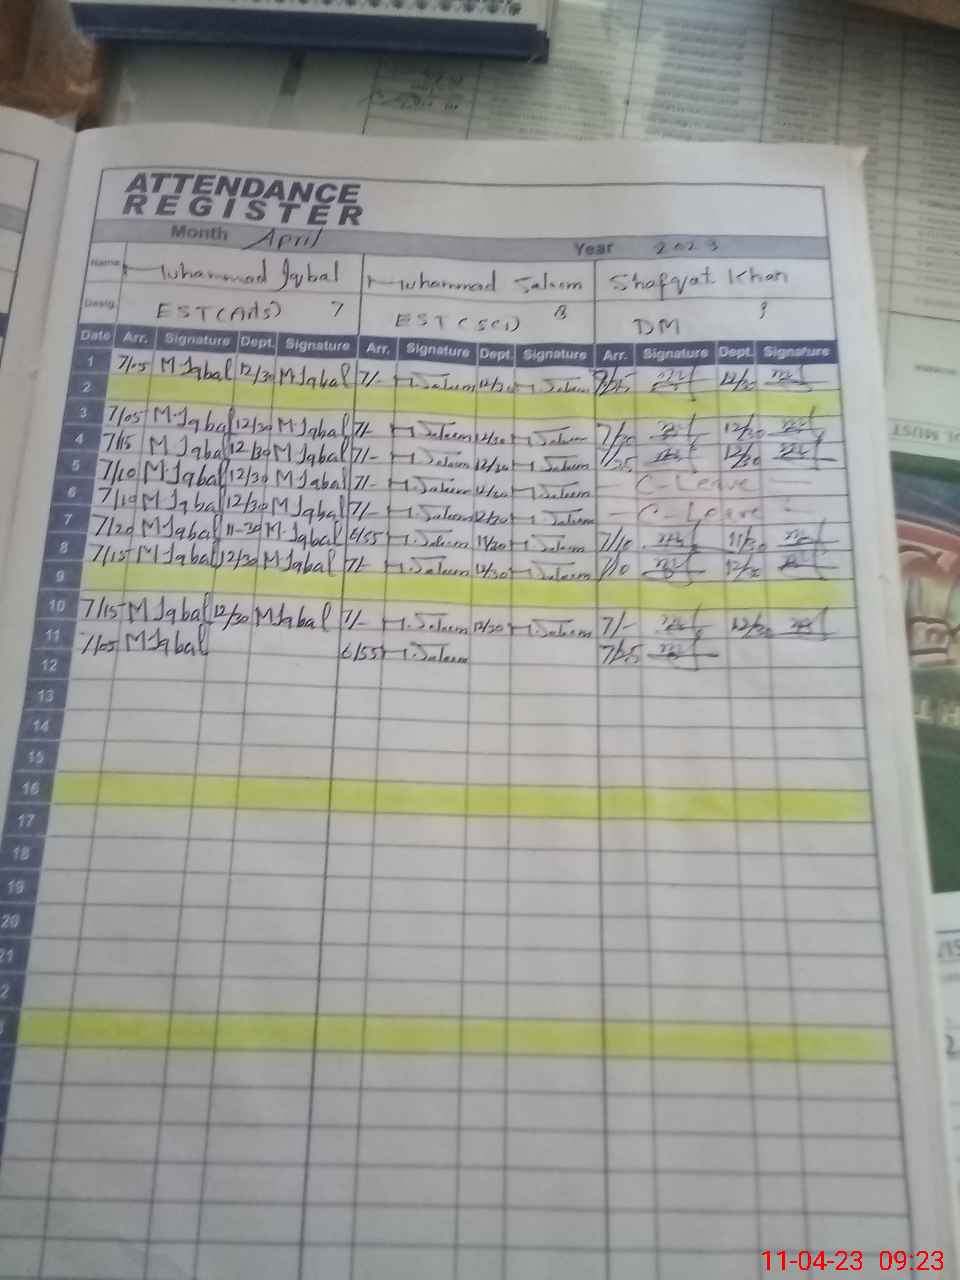 ATTENDANCE
REGISTER
Month April Year 2023
Name Muhammad Iqbal Muhammad Saleem Shafqat Khan
Desig. EST(Arts) 7 EST(Sci) 8 DM 9
Date Arr. Signature Dept. Signature Arr. Signature Dept. Signature Arr. Signature Dept. Signature
1 7/05 M Iqbal 12/30 M Iqbal 7/- M.Saleem 12/30 M.Saleem 7/25 12/30
2
3 7/05 M.Iqbal 12/30 M Iqbal 7/- M.Saleem 12/30 M.Saleem 7/20 12/30
4 7/15 M Iqbal 12/30 M Iqbal 7/- M.Saleem 12/30 M.Saleem 7/25 12/30
5 7/10 M.Iqbal 12/30 M Iqbal 7/- M.Saleem 12/30 M.Saleem C-Leave
6 7/10 M Iqbal 12/30 M Iqbal 7/- M.Saleem 12/30 M.Saleem - C-Leave -
7 7/20 M Iqbal 11-30 M.Iqbal 6/55 M.Saleem 11/30 M.Saleem 7/10 11/30
8 7/15 M Iqbal 12/30 M Iqbal 7/- M.Saleem 12/30 M.Saleem 7/10 12/30
9
10 7/15 M Iqbal 12/30 M Iqbal 7/- M.Saleem 12/30 M.Saleem 7/- 12/30
11 7/05 M Iqbal 6/55 M.Saleem 7/25
12
13
14
15
16
17
18
19
20
21
11-04-23 09:23